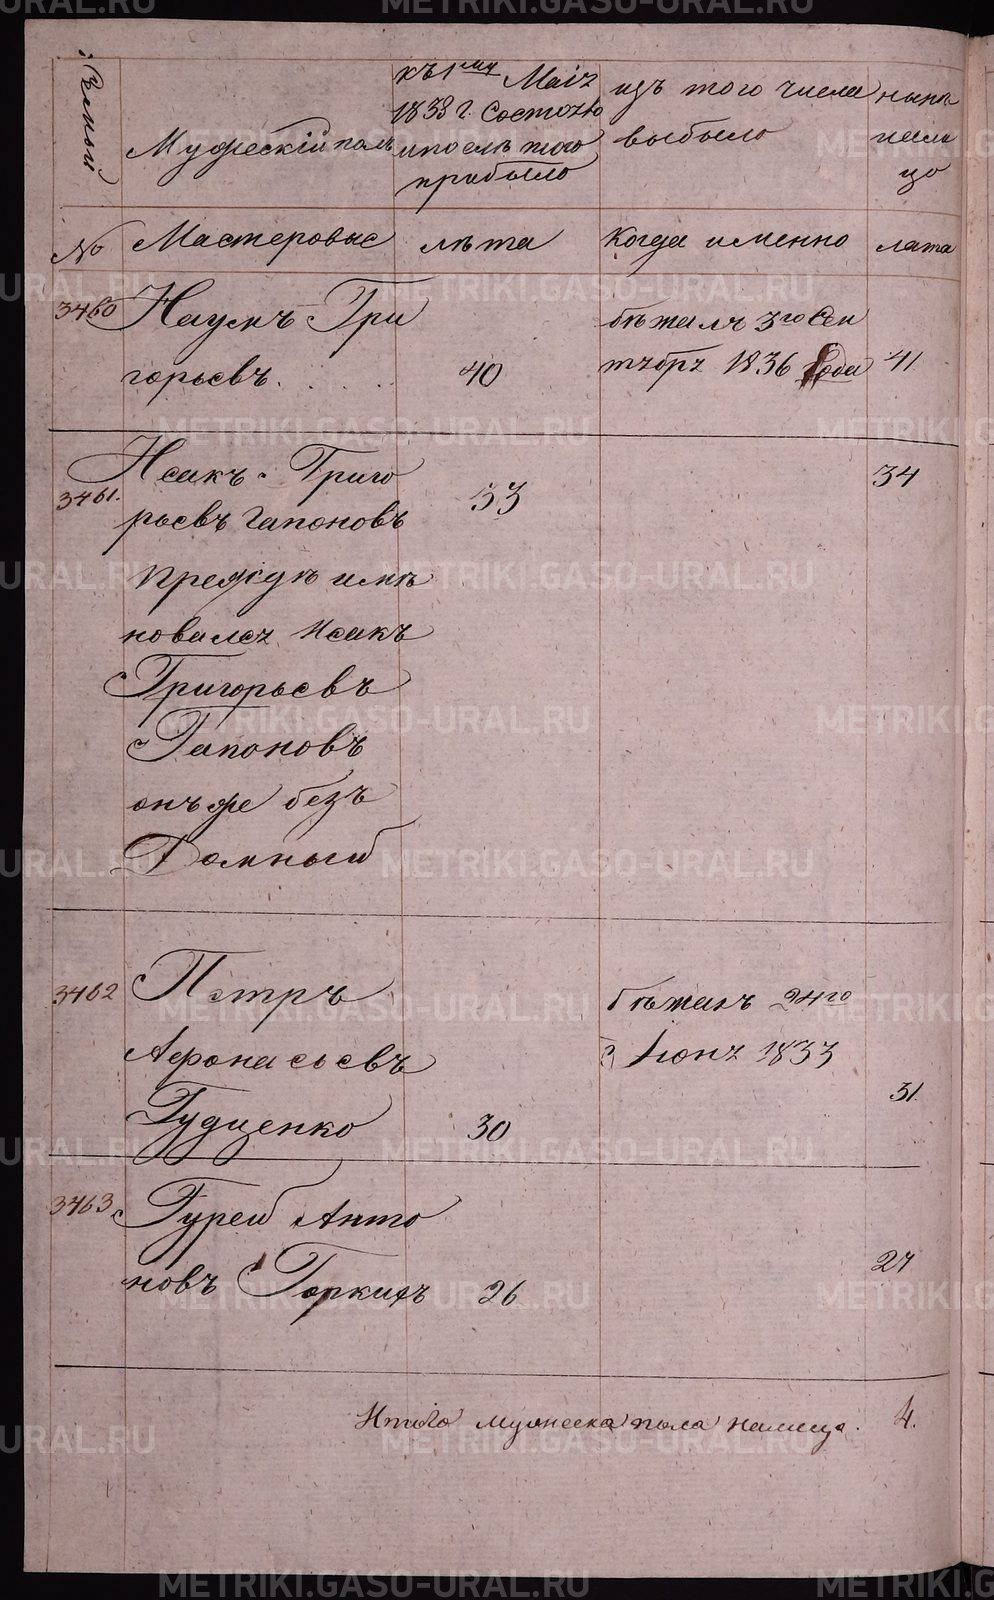 Семьи
Мужескій полъ
къ 1му Маія
1833 г. Состояло
и после того
прибыло
изъ того числа
выбыло
ныне
нали
цо
№
Мастеровые
лѣта
Когда именно
лѣта
3460
Наумъ Гри
горьевъ
40
бѣжалъ 3го Сен
тября 1836 Года
41
3461.
Исакъ Григо
рьевъ Гапоновъ
33
34
Прежде име
новался Исакъ
Григорьевъ
Гапоновъ
онъ же без
Домный
3462
Петръ
Афонасьевъ
Гудценко
30
бѣжалъ 24го
Іюня 1833
31.
3463.
Гурей Анто
новъ Горкихъ
26
27
Итого мужеска пола налицо.
4.
METRIKI.GASO-URAL.RU